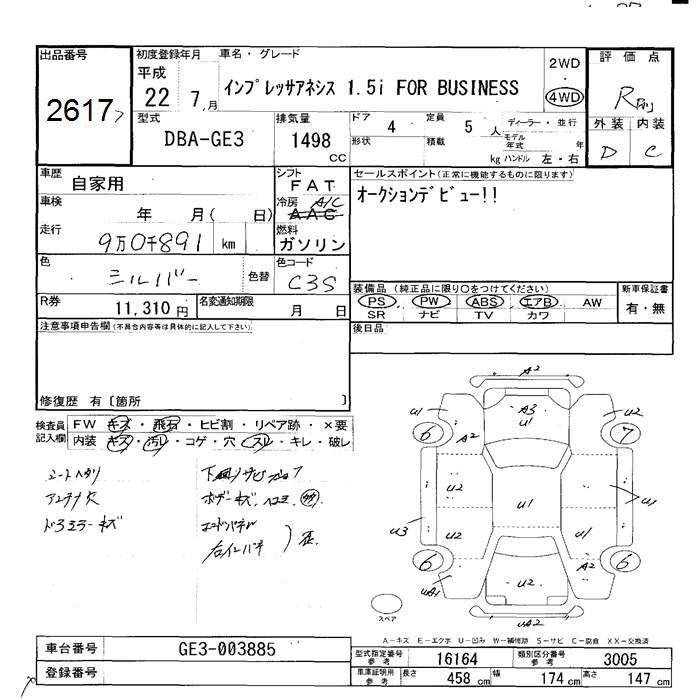 出品番号
2617
初度登録年月
平成
22 7 月
車名・グレード
インプレッサアネシス 1.5i FOR BUSINESS
2WD
4WD
評価点
R
外装 内装
D C
型式
DBA-GE3
排気量
1498
CC
ドア
4
定員
5 人
形状
積載
kg
ディーラー・並行
モデル年式 年
ハンドル 左・右
車歴
自家用
シフト
FAT
車検
年 月( 日)
冷房 A/C
AAC
走行
9万0千891 km
燃料
ガソリン
色
シルバー
色替
色コード
C3S
R券
11,310 円
名変通知期限
月 日
セールスポイント(正常に機能するものに限ります)
オークションデビュー!!
装備品(純正品に限り○をつけてください)
PS PW ABS エアB AW
SR ナビ TV カワ
新車保証書
有・無
後日品
注意事項申告欄(不具合内容等は具体的に記入して下さい)
修復歴 有[箇所 ]
検査員記入欄
FW キズ・飛石・ヒビ割・リペア跡・×要
内装 キズ・汚レ・コゲ・穴・スレ・キレ・破レ
シートヘタリ
アンテナ欠
ドアミラーキズ
ボデーキズ、ヘコミ
エンドパネル
A2
A3
U1
U1
U2
6
7
A2
U2
U1
U1
U3
U1
A2
6
6
UA1
U2
UA2
スペア
A-キズ E-エクボ U-凹み W-補修跡 S-サビ C-腐食 XX-交換済
車台番号
GE3-003885
登録番号
型式指定番号 参考
16164
類別区分番号 参考
3005
車庫証明用 参考
長さ 458 cm
幅 174 cm
高さ 147 cm